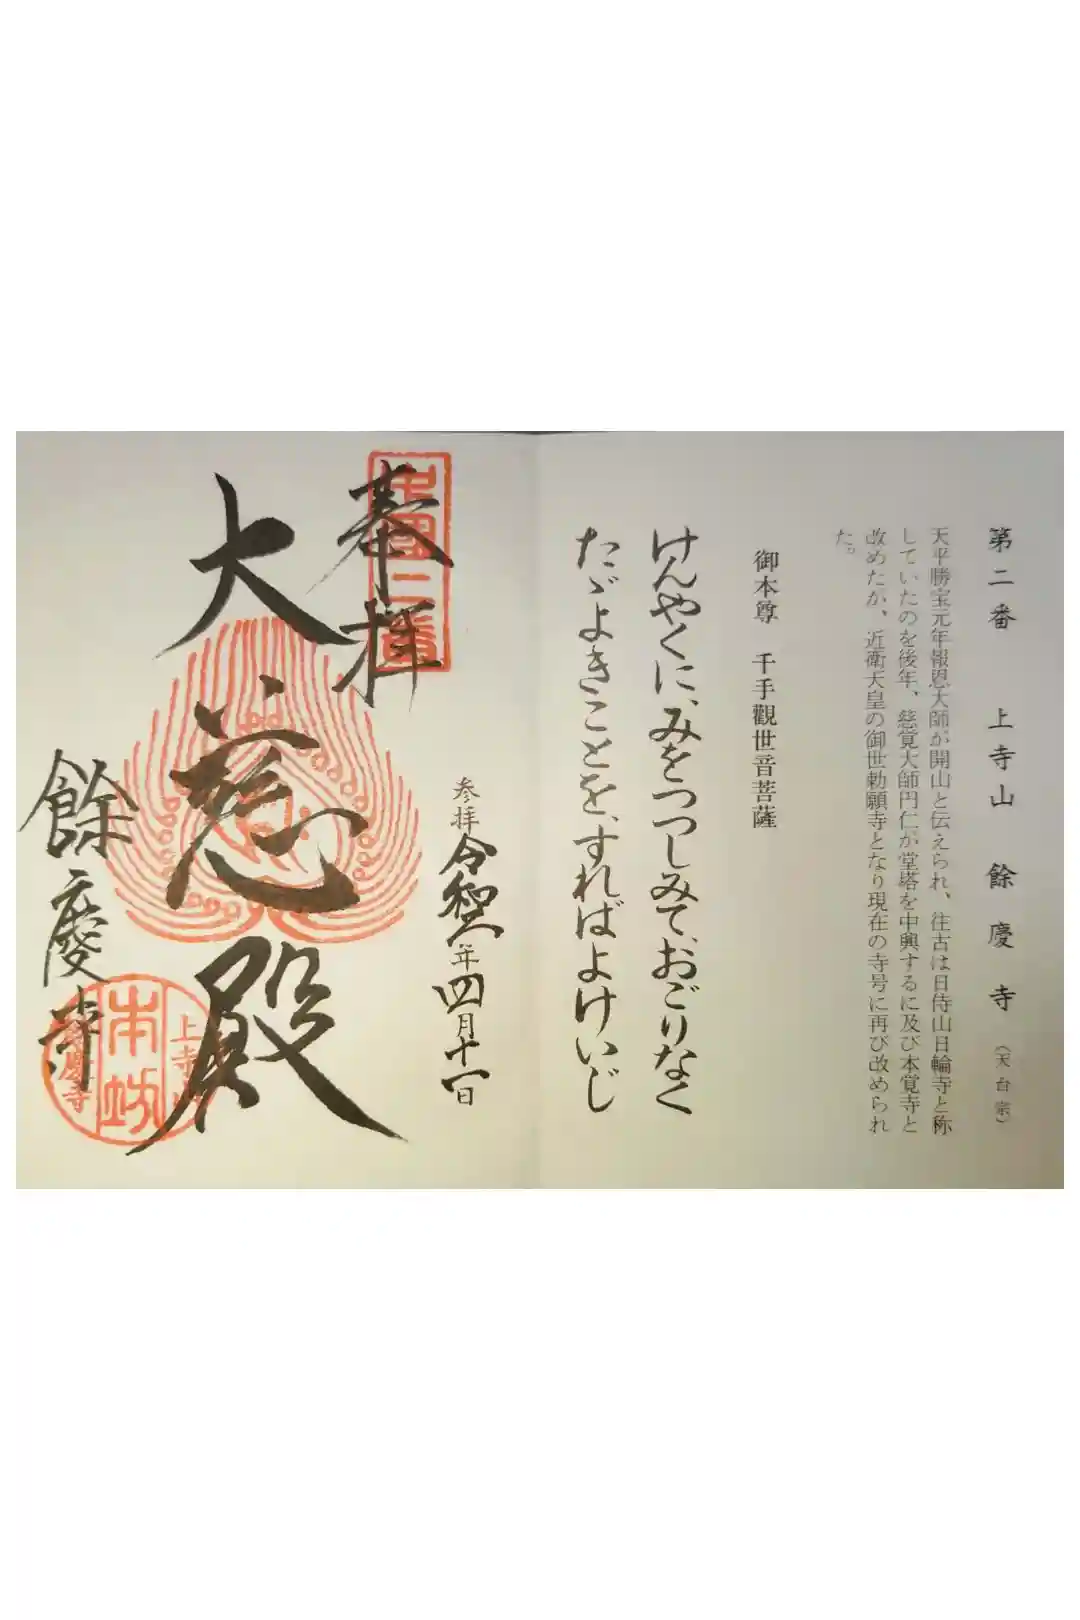 第二番 上寺山 餘慶寺 (天台宗)
天平勝宝元年報恩大師が開山と伝えられ、往古は日待山日輪寺と称
していたのを後年、慈覚大師円仁が堂塔を中興するに及び本覚寺と
改めたが、近衛天皇の御世勅願寺となり現在の寺号に再び改められ
た。
御本尊 千手觀世音菩薩
けんやくに、みをつつしみておごりなく
たゞよきことを、すればよけいじ
参拝 令和二年四月十一日
奉拝
中國二番
大慈殿
餘慶寺
上寺山
本坊
餘慶寺